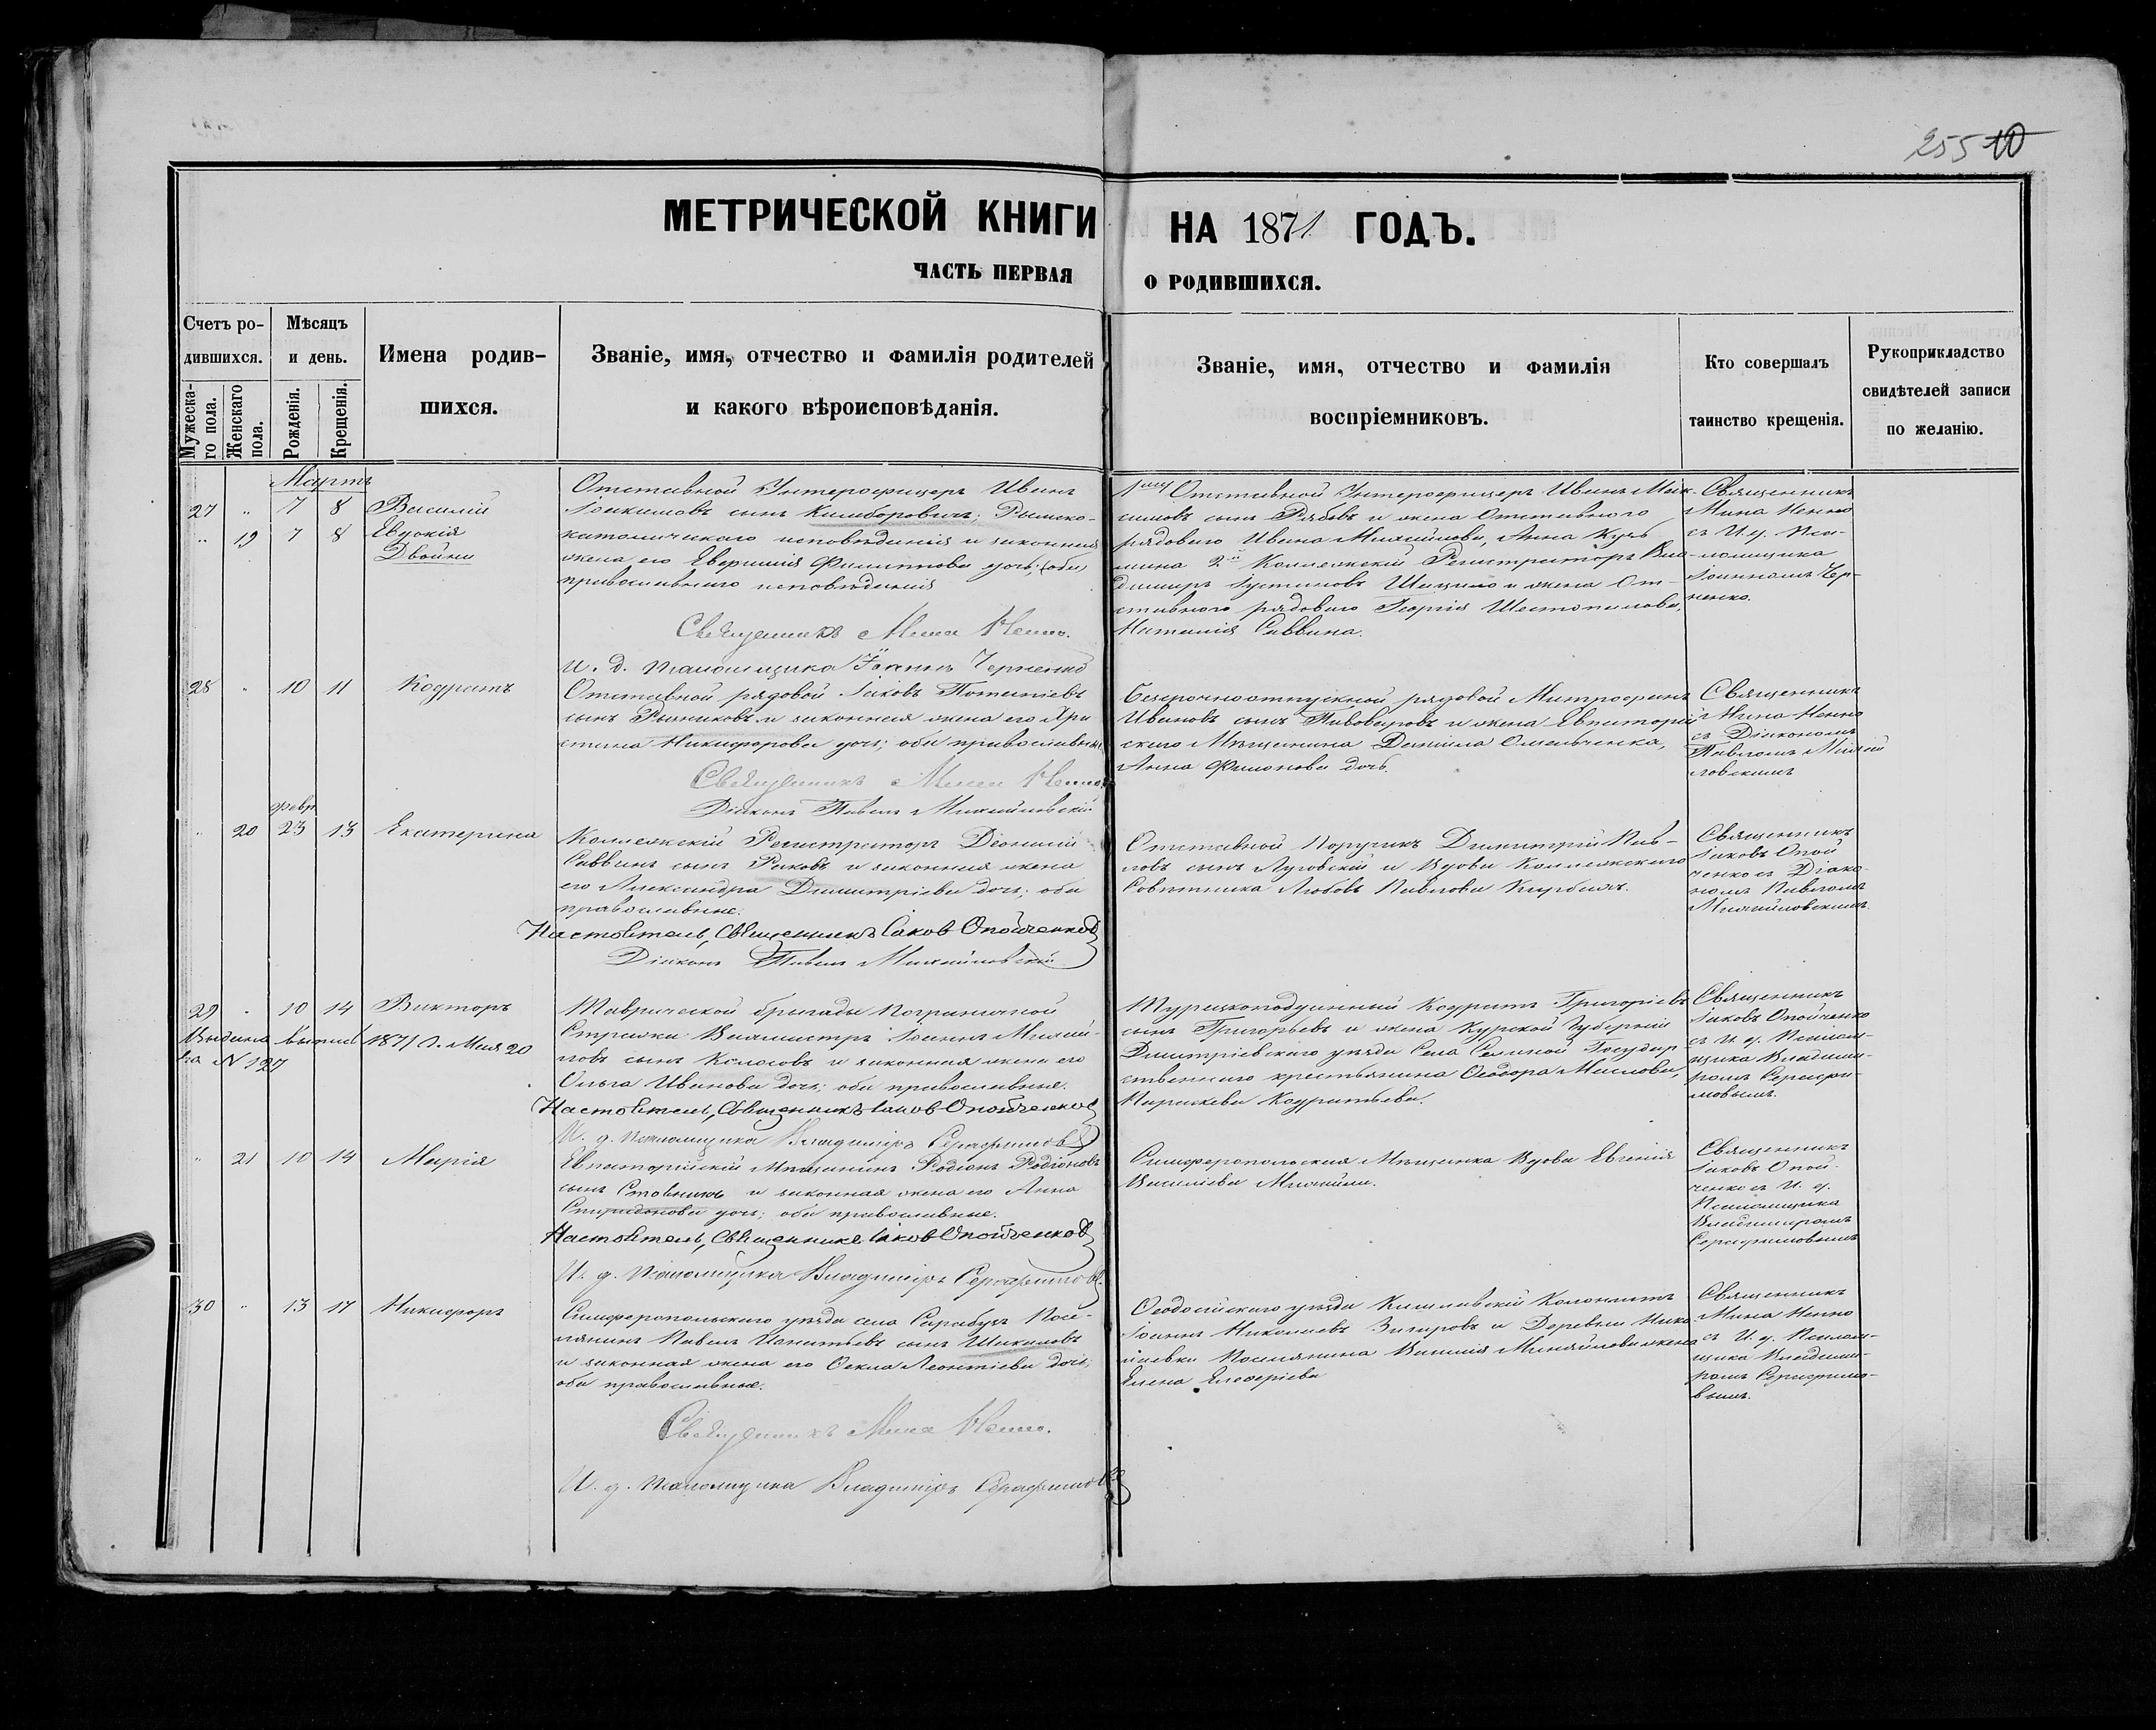 255 10
МЕТРИЧЕСКОЙ КНИГИ НА 1871 ГОДЪ.
ЧАСТЬ ПЕРВАЯ О РОДИВШИХСЯ.
Счетъ ро-
дившихся.
Мужеска-
го пола.
Женскаго
пола.
Мѣсяцъ
и день.
Рожденія.
Крещенія.
Имена родив-
шихся.
Званіе, имя, отчество и фамилія родителей
и какого вѣроисповѣданія.
Званіе, имя, отчество и фамилія
воспріемниковъ.
Кто совершалъ
таинство крещенія.
Рукоприкладство
свидѣтелей записи
по желанію.
Мартъ
27 " 7 8 Василій
" 19 7 8 Евдокія
Двойни
Отставной Унтерофицеръ Иванъ
Іоакимовъ сынъ Кимборовичъ; Римско-
католическаго исповѣданія и законная
жена его Евфимія Филиппова дочь, (оба)
православнаго исповѣданія
Священникъ Мина Ненно.
И. д. псаломщика Іоаннъ Черненко
Отставной Унтерофицеръ Иванъ Мак-
симовъ сынъ Рябовъ и жена Отставнаго
рядоваго Ивана Михайлова, Анна Кузь
мина 2й Коллежскій Регистраторъ Вла-
димиръ Іустиновъ Шацило и жена От-
ставнаго рядоваго Георгія Шестопалова,
Наталія Саввина.
Священникъ
Мина Ненно
съ И. д. Пса-
ломщика
Іоанномъ Чер-
ненко.
28 " 10 11 Кодратъ
Отставной рядовой Іаковъ Потапіевъ
сынъ Рыжиковъ и законная жена его Хри
стина Никифорова дочь; оба православные
Священникъ Мина Ненно
Діаконъ Павелъ Михайловскій
Безсрочноотпускной рядовой Митрофанъ
Ивановъ сынъ Пивоваровъ и жена Евпаторій
скаго Мѣщанина Даніила Омельченка,
Анна Филонова дочь.
Священникъ
Мина Ненно
съ Діакономъ
Павломъ Михай
ловскимъ
Февр
" 20 23 13 Екатерина
Коллежскій Регистраторъ Діонисій
Саввинъ сынъ Раковъ и законная жена
его Александра Димитріева дочь; оба
православные.
Настоятель, Священникъ Іаковъ Опойченковъ
Діаконъ Павелъ Михайловскій
Отставной Поручикъ Димитрій Пав-
ловъ сынъ Луговскій и Вдова Коллежскаго
Совѣтника Любовь Павлова
Священникъ
Іаковъ Опой
ченко съ Діако-
номъ Павломъ
Михайловскимъ.
29 " 10 14 Викторъ
Выдана выпись 1871 г. Мая 20
за N 127
Таврической бригады Пограничной
Стражи Вахмистръ Іоаннъ Михай-
ловъ сынъ Колосовъ и законная жена его
Ольга Иванова дочь; оба православные.
Настоятель, Священникъ Іаковъ Опойченковъ
И. д. псаломщика Владиміръ Серафимовъ
Турецкоподданный Кодратъ Григоріевъ
сынъ Григорьевъ и жена Курской Губерніи
Димитріевскаго уѣзда Села Государ-
ственнаго крестьянина Ѳеодора Маслова,
Параскева Кодратьева.
Священникъ
Іаковъ Опойченко
съ И. д. Псалом-
щика Владими-
ромъ Серафи-
мовымъ.
" 21 10 14 Марія
Евпаторійскій Мѣщанинъ Родіонъ Родіоновъ
сынъ и законная жена его Анна
Спиридонова дочь; оба православные.
Настоятель, Священникъ Іаковъ Опойченковъ
И. д. псаломщика Владиміръ Серафимовъ.
Симферопольская Мѣщанка Вдова Евгенія
Василіева
Священникъ
Іаковъ Опой-
ченко съ И. д.
Псаломщика
Владимиромъ
Серафимовымъ
30 " 13 17 Никифоръ
Симферопольскаго уѣзда села Сарабузъ Посе-
лянинъ Павелъ Игнатьевъ сынъ Шикаловъ
и законная жена его Ѳекла Леонтіева дочь;
оба православные.
Священникъ Мина Ненно.
И. д. псаломщика Владиміръ Серафимовъ
Ѳеодосійскаго уѣзда Кишлавскій Колонистъ
Іоаннъ Николаевъ Захаровъ и Деревни Нико-
лаевки Поселянина Василія Михайлова жена
Елена Елеверіева
Священникъ
Мина Ненно
съ И. д. Псалом-
щика Владими-
ромъ Серафимо-
вымъ.